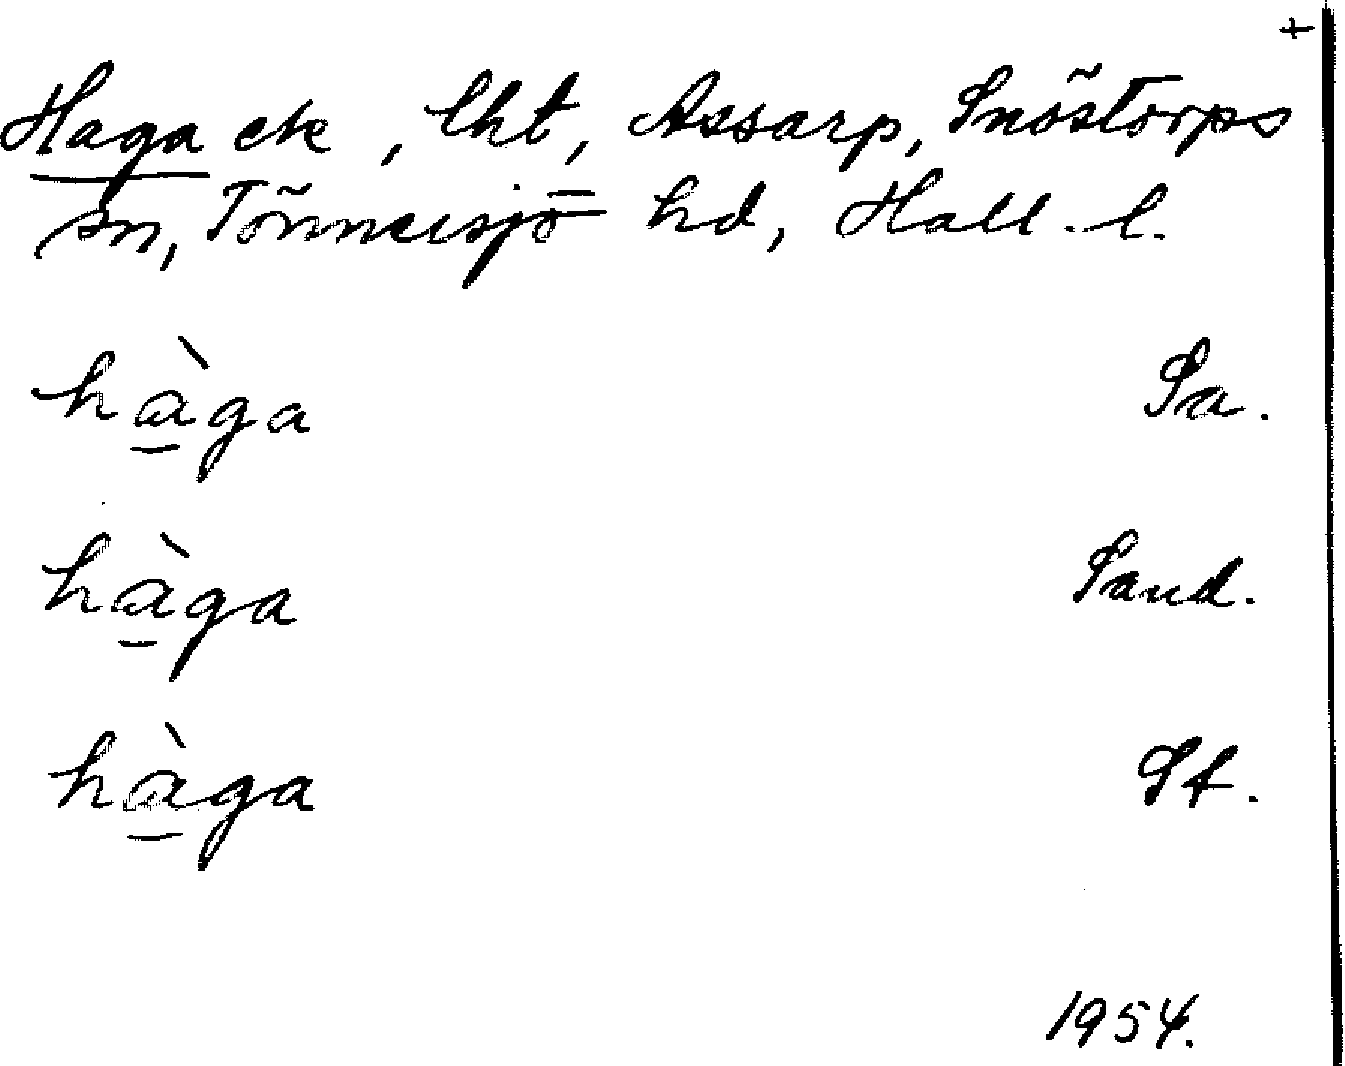 +
Haga ek, lht, Assarp, Snöstorps
sn, Tönnersjö hd, Hall. l.
hàga Sa.
hàga Sand.
hàga St.
1954.